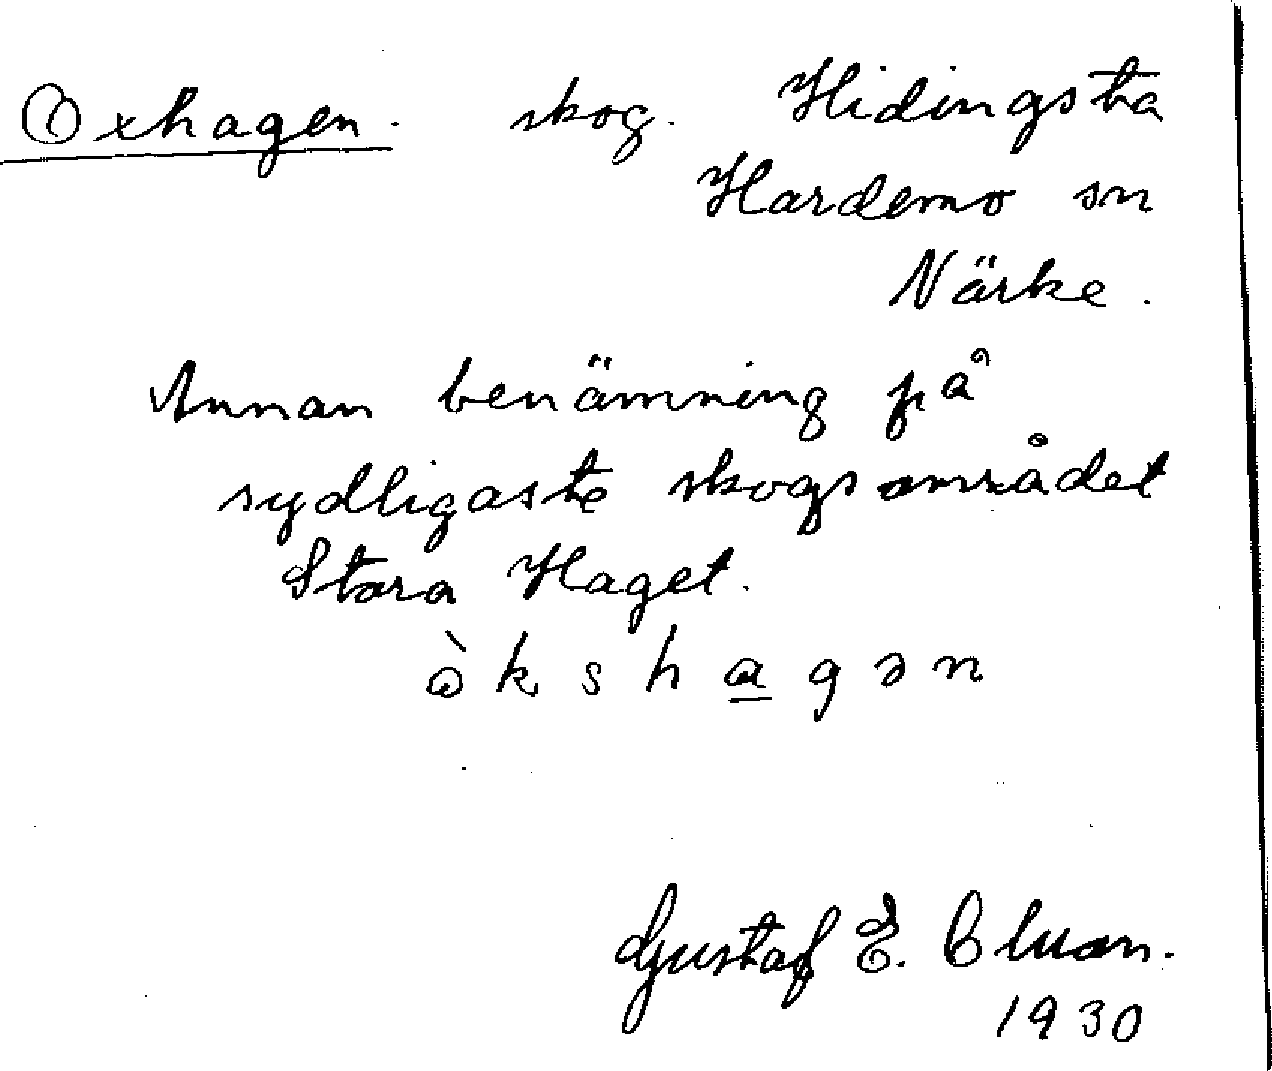 Oxhagen. skog. Hidingsta
Hardemo sn
Närke.
Annan benämning på
sydligaste skogsområdet
Stora Haget.
ò k s h a g ə n
Gustaf E. Cluan.
1930